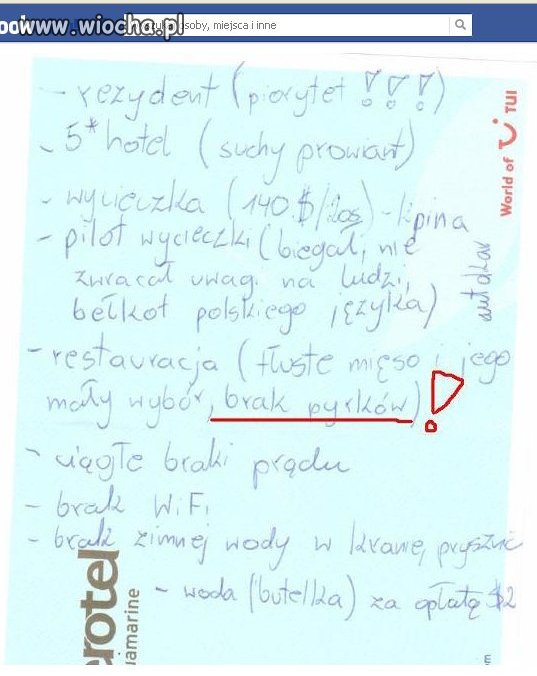 ook
www.wiocha.pl
szyk
osoby, miejsca i inne
- rezydent (piorytet !!!)
- 5* hotel (suchy prowiant)
- wycieczka (140 $/2os) - kpina
- pilot wycieczki (biegał, nie
zwracał uwagi na ludzi,
bełkot polskiego języka)
autokar
- restauracja (tłuste mięso i jego
mały wybór, brak pyrków) !
- ciągłe braki prądu
- brak WiFi
- brak zimnej wody w kranie, prysznic
- woda (butelka) za opłatą $2
World of TUI
erotel
uamarine
m